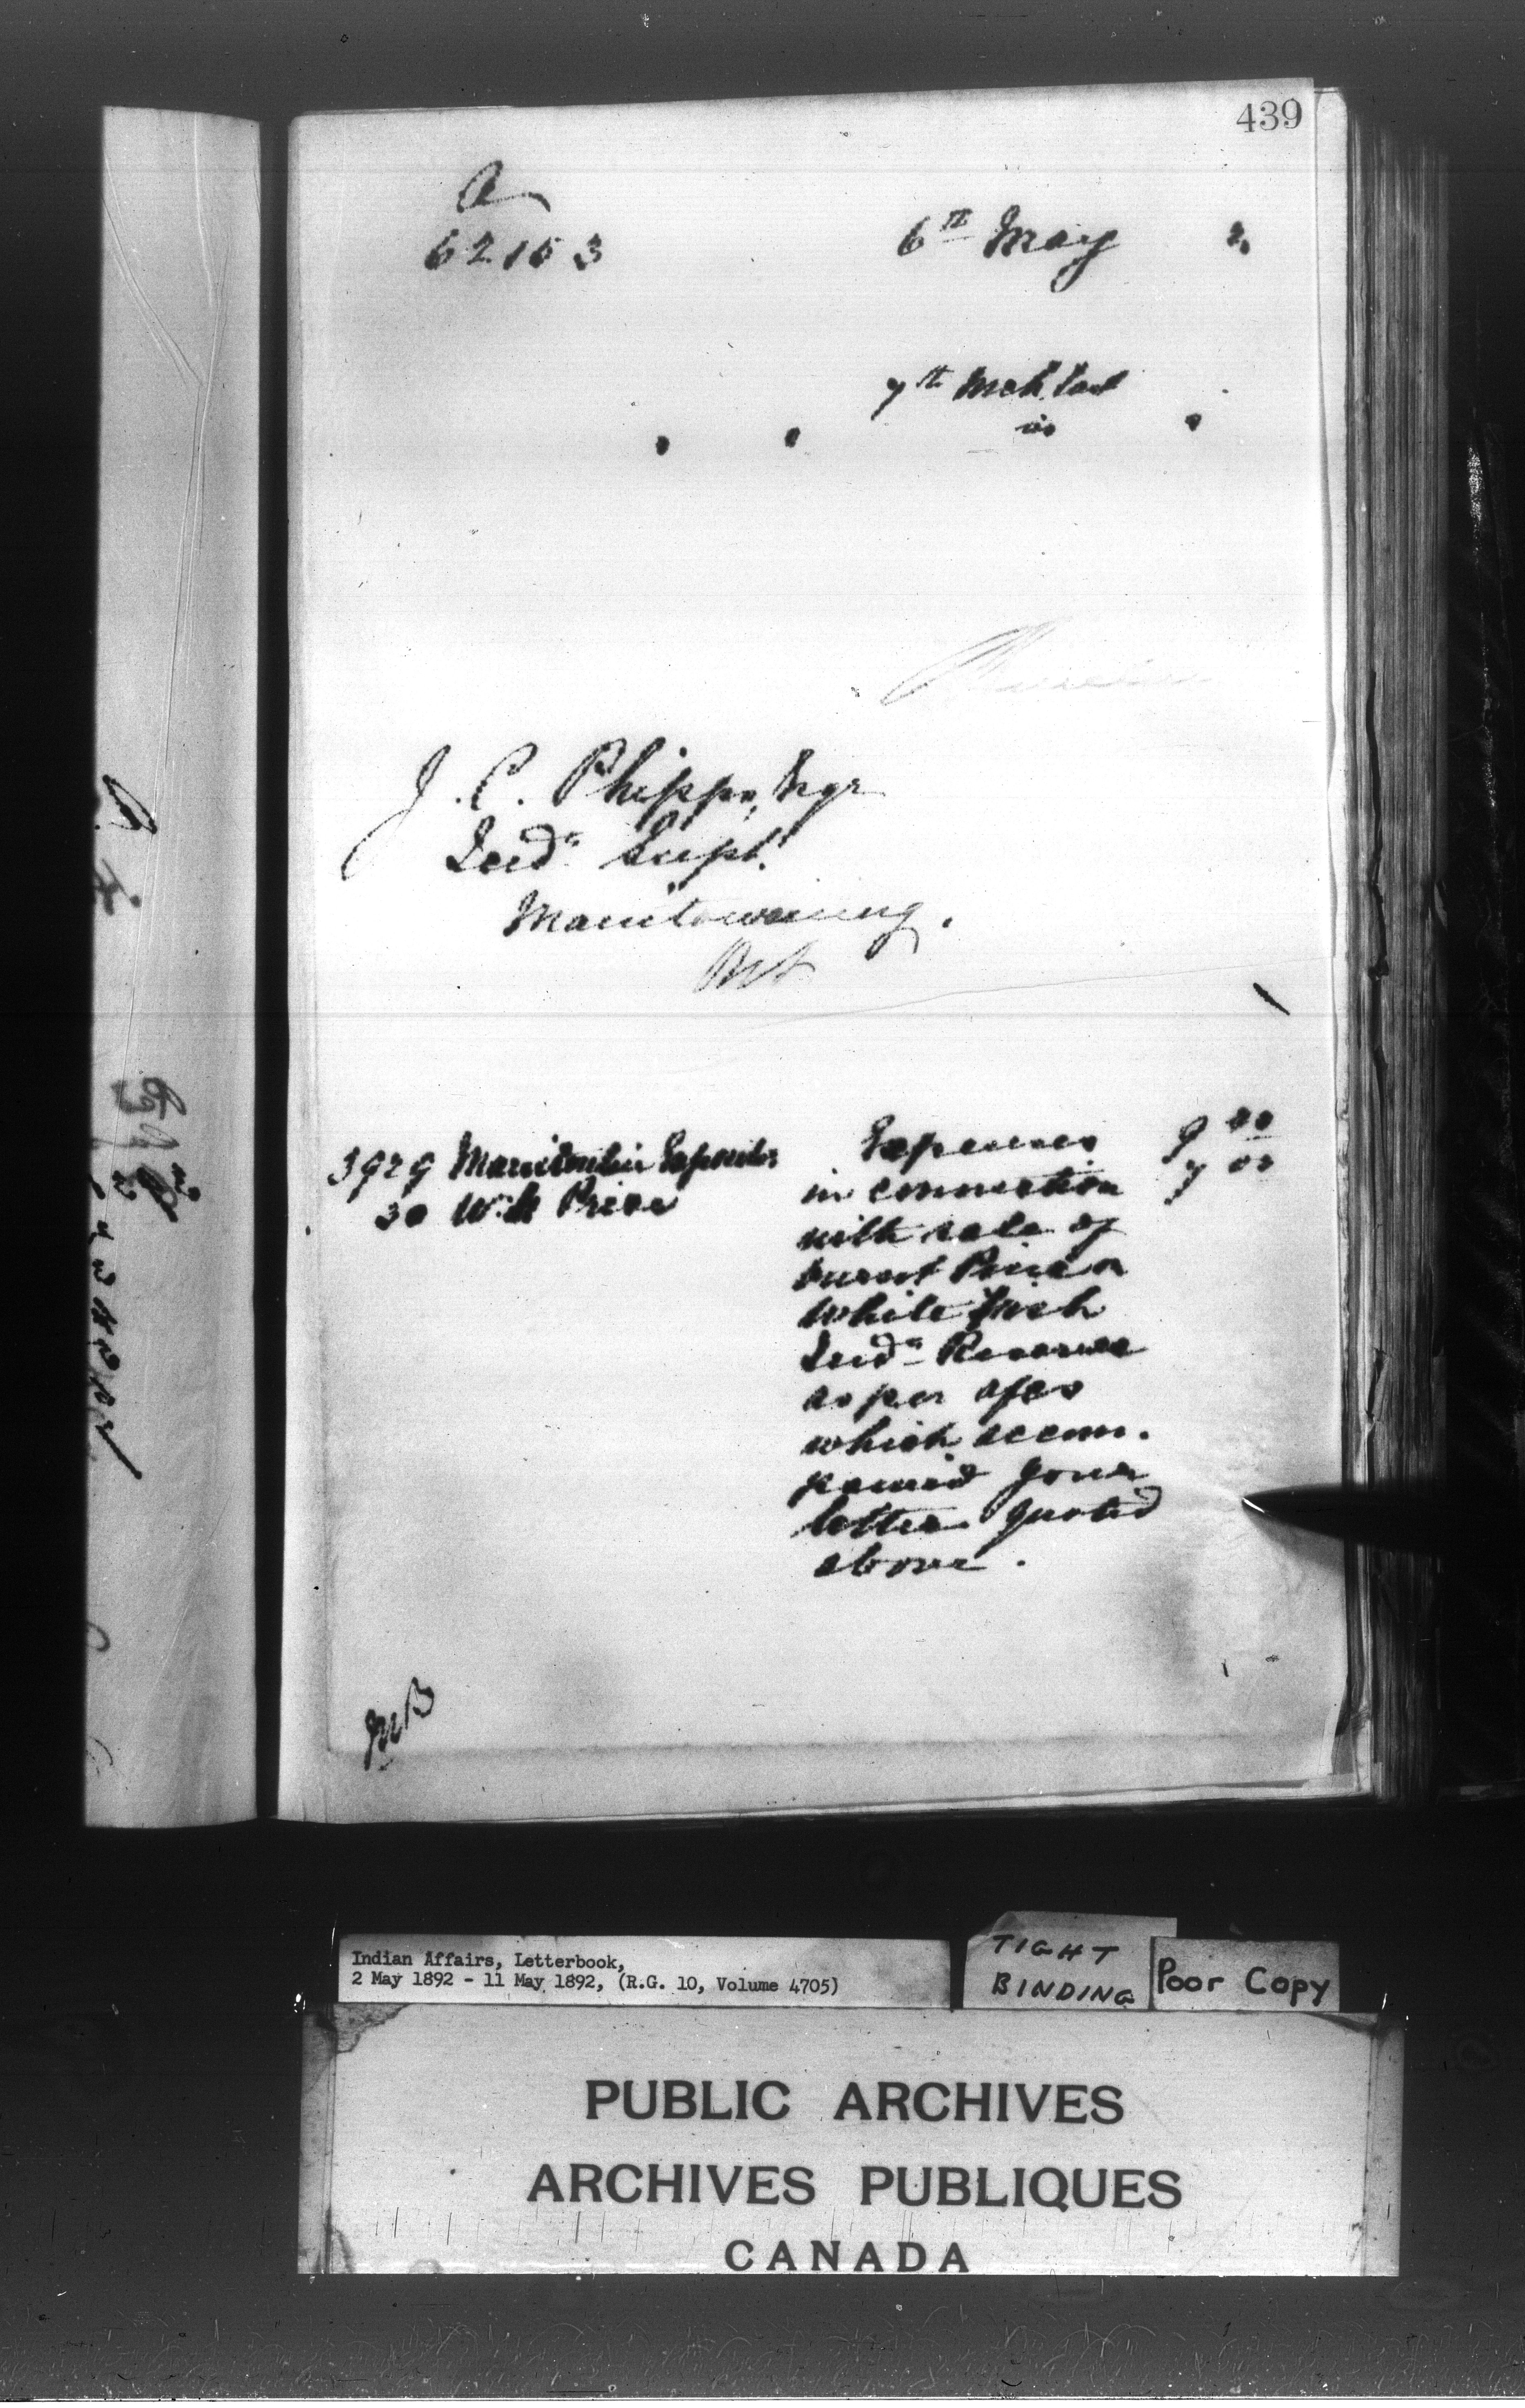 439
A
62153
6th May 2
7th Mch last
is
J. C. Phipps, Esqr
Indn Supt.
Manitowaning.
Ont
3929 Manitoulin Expositor Expenses 9 00
30 W. H. Price in connection 7 00
with sale of
burnt Pine on
White Fish
Indn Reserve
as per a/cs
which accom-
panied your
letter quoted
above.
Indian Affairs, Letterbook,
2 May 1892 - 11 May 1892, (R.G. 10, Volume 4705)
TIGHT
BINDING
Poor Copy
PUBLIC ARCHIVES
ARCHIVES PUBLIQUES
CANADA